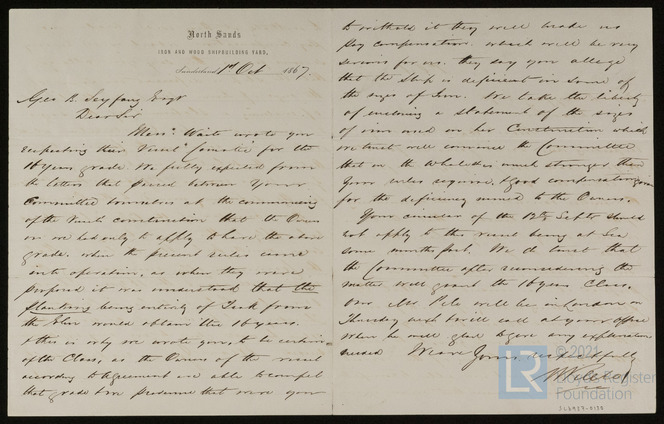 North Sands
IRON AND WOOD SHIPBUILDING YARD,
Sunderland 1st Oct 1867.
Geo B. Seyfang Esqr
Dear Sir
Messrs Waite wrote you
respecting their Vessel for the
16 Years grade. We fully expected from
the letters that passed between Your
Committee & ourselves at the commencing
of the Vessels construction that the Owners
or we had only to apply to have the above
grade. when the present rules came
into operation, as when they were
proposed it was understood that the
planking being entirely of Teak from
the would obtain the 16 years.
& this is only we wrote you, to be certain
of the Class, as the Owners of the vessel
according to Agreement are able to compel
that grade & we presume that were you
to withold it they will make us
pay compensation. which will be very
serious for us. they say you allege
that the Ship is deficient in some of
the sizes of Iron. We take the liberty
of enclosing a Statement of the sizes
of iron used on her Construction which
we trust will convince the Committee
that on the Whole she is much stronger than
Your rules require, & good compensation given
for the deficiency named to the Owners.
Your circular of the 12th Septr should
not apply to the vessel being at Sea
some months past. We do trust that
the Committee after reconsidering the
matter will grant the 16 years Class.
Our Mr Pile will be in London on
Thursday next & will call at your office
when he will glad to give any explanation
needed We are Yours respectfully
W Pile & Co
© 2021
LR
Lloyd's Register
Foundation